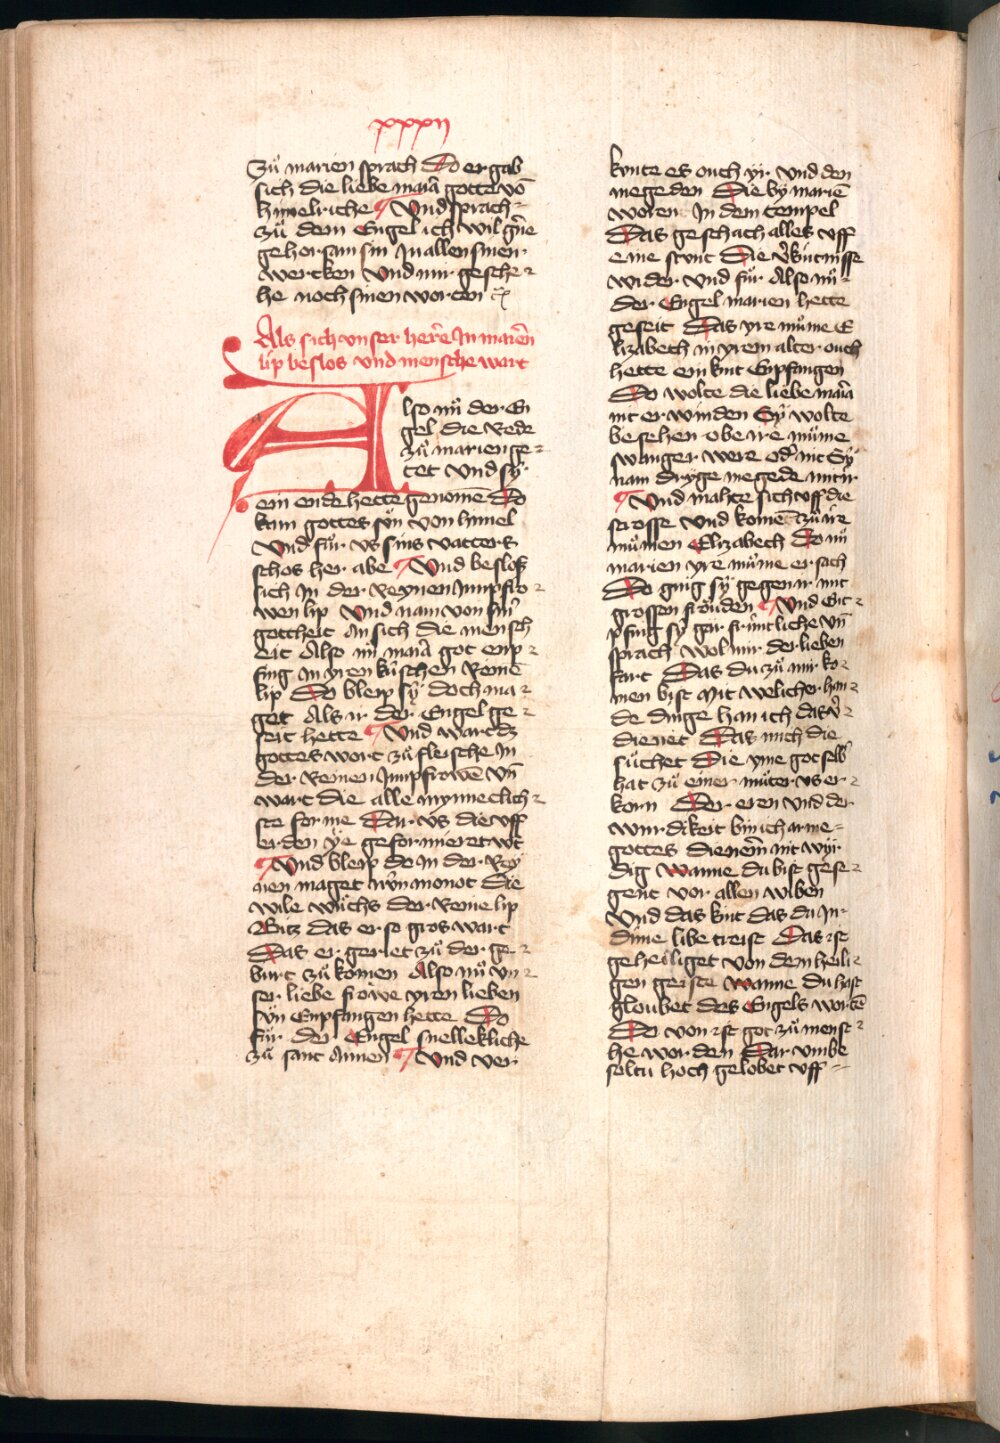 xxxij
Zuͦ marien sprach Do er gab
sich die liebe maīa gotte vō
himelriche ¶ Vnd sprach
zuͦ dem Engel ich wil gͤne
gehorsam sin Jn allen sinen
wercken Vnd mir gesche⸗
he noch sinen worten
Als sich vnser herre Jn marien
lip beslos vnd mensche wart
Also nuͦ der En
gel die Rede
zuͦ marien ge⸗
tet vnd sÿ
ein ende hette genomē Do
kam gottes suͦn von himel
Vnd fuͦr vs sins vatters
schos her abe ¶ Vnd beslos
sich Jn der Reynen Jumpfro⸗
wen lip Vnd nam von sinͬ
gottheit An sich die mensch
eit Also nuͦ maīa got enp⸗
fing Jn yren kuͤschen Reinē
lip Do bleip sÿ doch ma⸗
get Als ir der Engel ge⸗
seit hette ¶ Vnd wart dz
gottes wort zuͦ fleische Jn
der Reinen Jumpfrowē vn̄
wart die alle mynneclich⸗
ste forme Dar vs die vff
erden ye geformieret wt
¶ Vnd bleip do Jn der Rey
nen maget nuͤn monot Die
wile wuͦchs der Reine lip
Bitz das er so gros wart
Das er geriet zuͦ der ge⸗
burt zuͦ komen Also nuͦ vn⸗
ser liebe frowe yren lieben
suͦn Enpfangen hette Do
fuͦr der Engel snellekliche
zuͦ sant Annen ¶ Vnd ver
kunte es ouch yr Vnd den
megeden Die by mariē
woren Jn dem tempel
Das geschach alles vff
eine stunt Die vͤkuͤntnisse
wider vnd fuͤr Also nuͦ
der Engel marien hette
geseit Das yre muͦme E
lizabeth in yrem alter ouch
hette ein kint Enpfangen
Do wolte die liebe maīa
nit erwinden Sÿ wolte
besehen obe ire muͦme
swanger were odͤ nit Sÿ
nam dryge megede mit ir
¶ Vnd mahte sich vff die
strosse Vnd komē zuͦ ire
muͦmen Elizabeth Do nuͦ
marien yre muͦme ersach
Do ging sÿ gegen ir mit
grossen froͤuden ¶ Vnd Ent⸗
pfing sÿ gar fruͤntliche vn̄
sprach wol mir der lieben
fart Das du zuͦ mir ko⸗
men bist Mit welicher han⸗
de dinge han ich das vͤ⸗
dienet Das mich die
suͦchet Die yme got selbͬ
hat zuͦ einer muͦter vs er⸗
korn Der eren vnd der
wurdikeit bin ich arme
gottes dienerin nit wyr
dig wanne du bist gese⸗
gent vor allen wiben
Vnd das kint das du Jn
dime libe treist Das ist
geheiliget von dem heili⸗
gen geiste wanne du hast
gloubet des Engels wortē
Do von ist got zuͦ mensc⸗
he worden Dar vmbe
soltu hoch gelobet vff